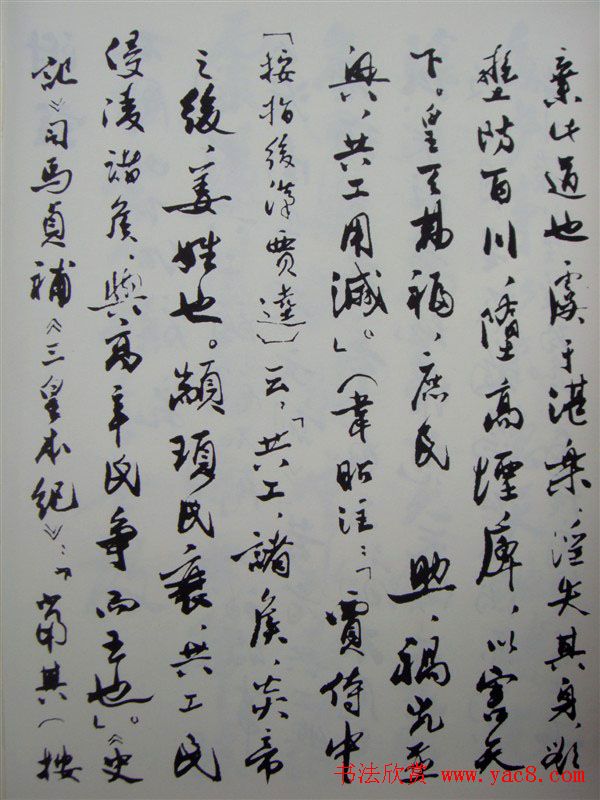 棄此道也，虞于湛樂，淫失其身，欲
壅防百川，墮高堙庳，以害天
下。皇天勿福，庶民 助，禍亂並
興，共工用滅。」（韋昭注：「賈侍中
［按指後漢賈逵］云，「共工，諸侯，炎帝
之後，姜姓也。顓頊氏衰，共工氏
侵凌諸侯，與高辛氏爭而王也」。《史
記》司馬貞補《三皇本紀》：「當其（按
书法欣赏 www.yac8.com